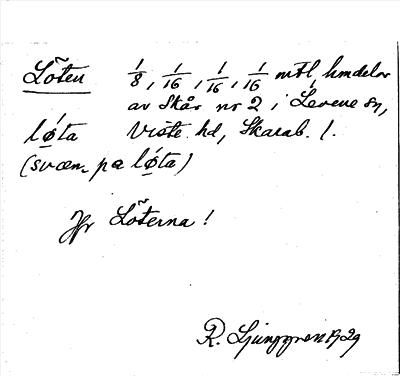 Löten 1/8, 1/16, 1/16, 1/16 mtl, hmdelar
av Skår nr 2 i Levene sn,
lø̀ta Viste hd, Skarab. l.
(svæn- pa lø̀ta)
Jfr Löterna!
R. Ljunggren 1929